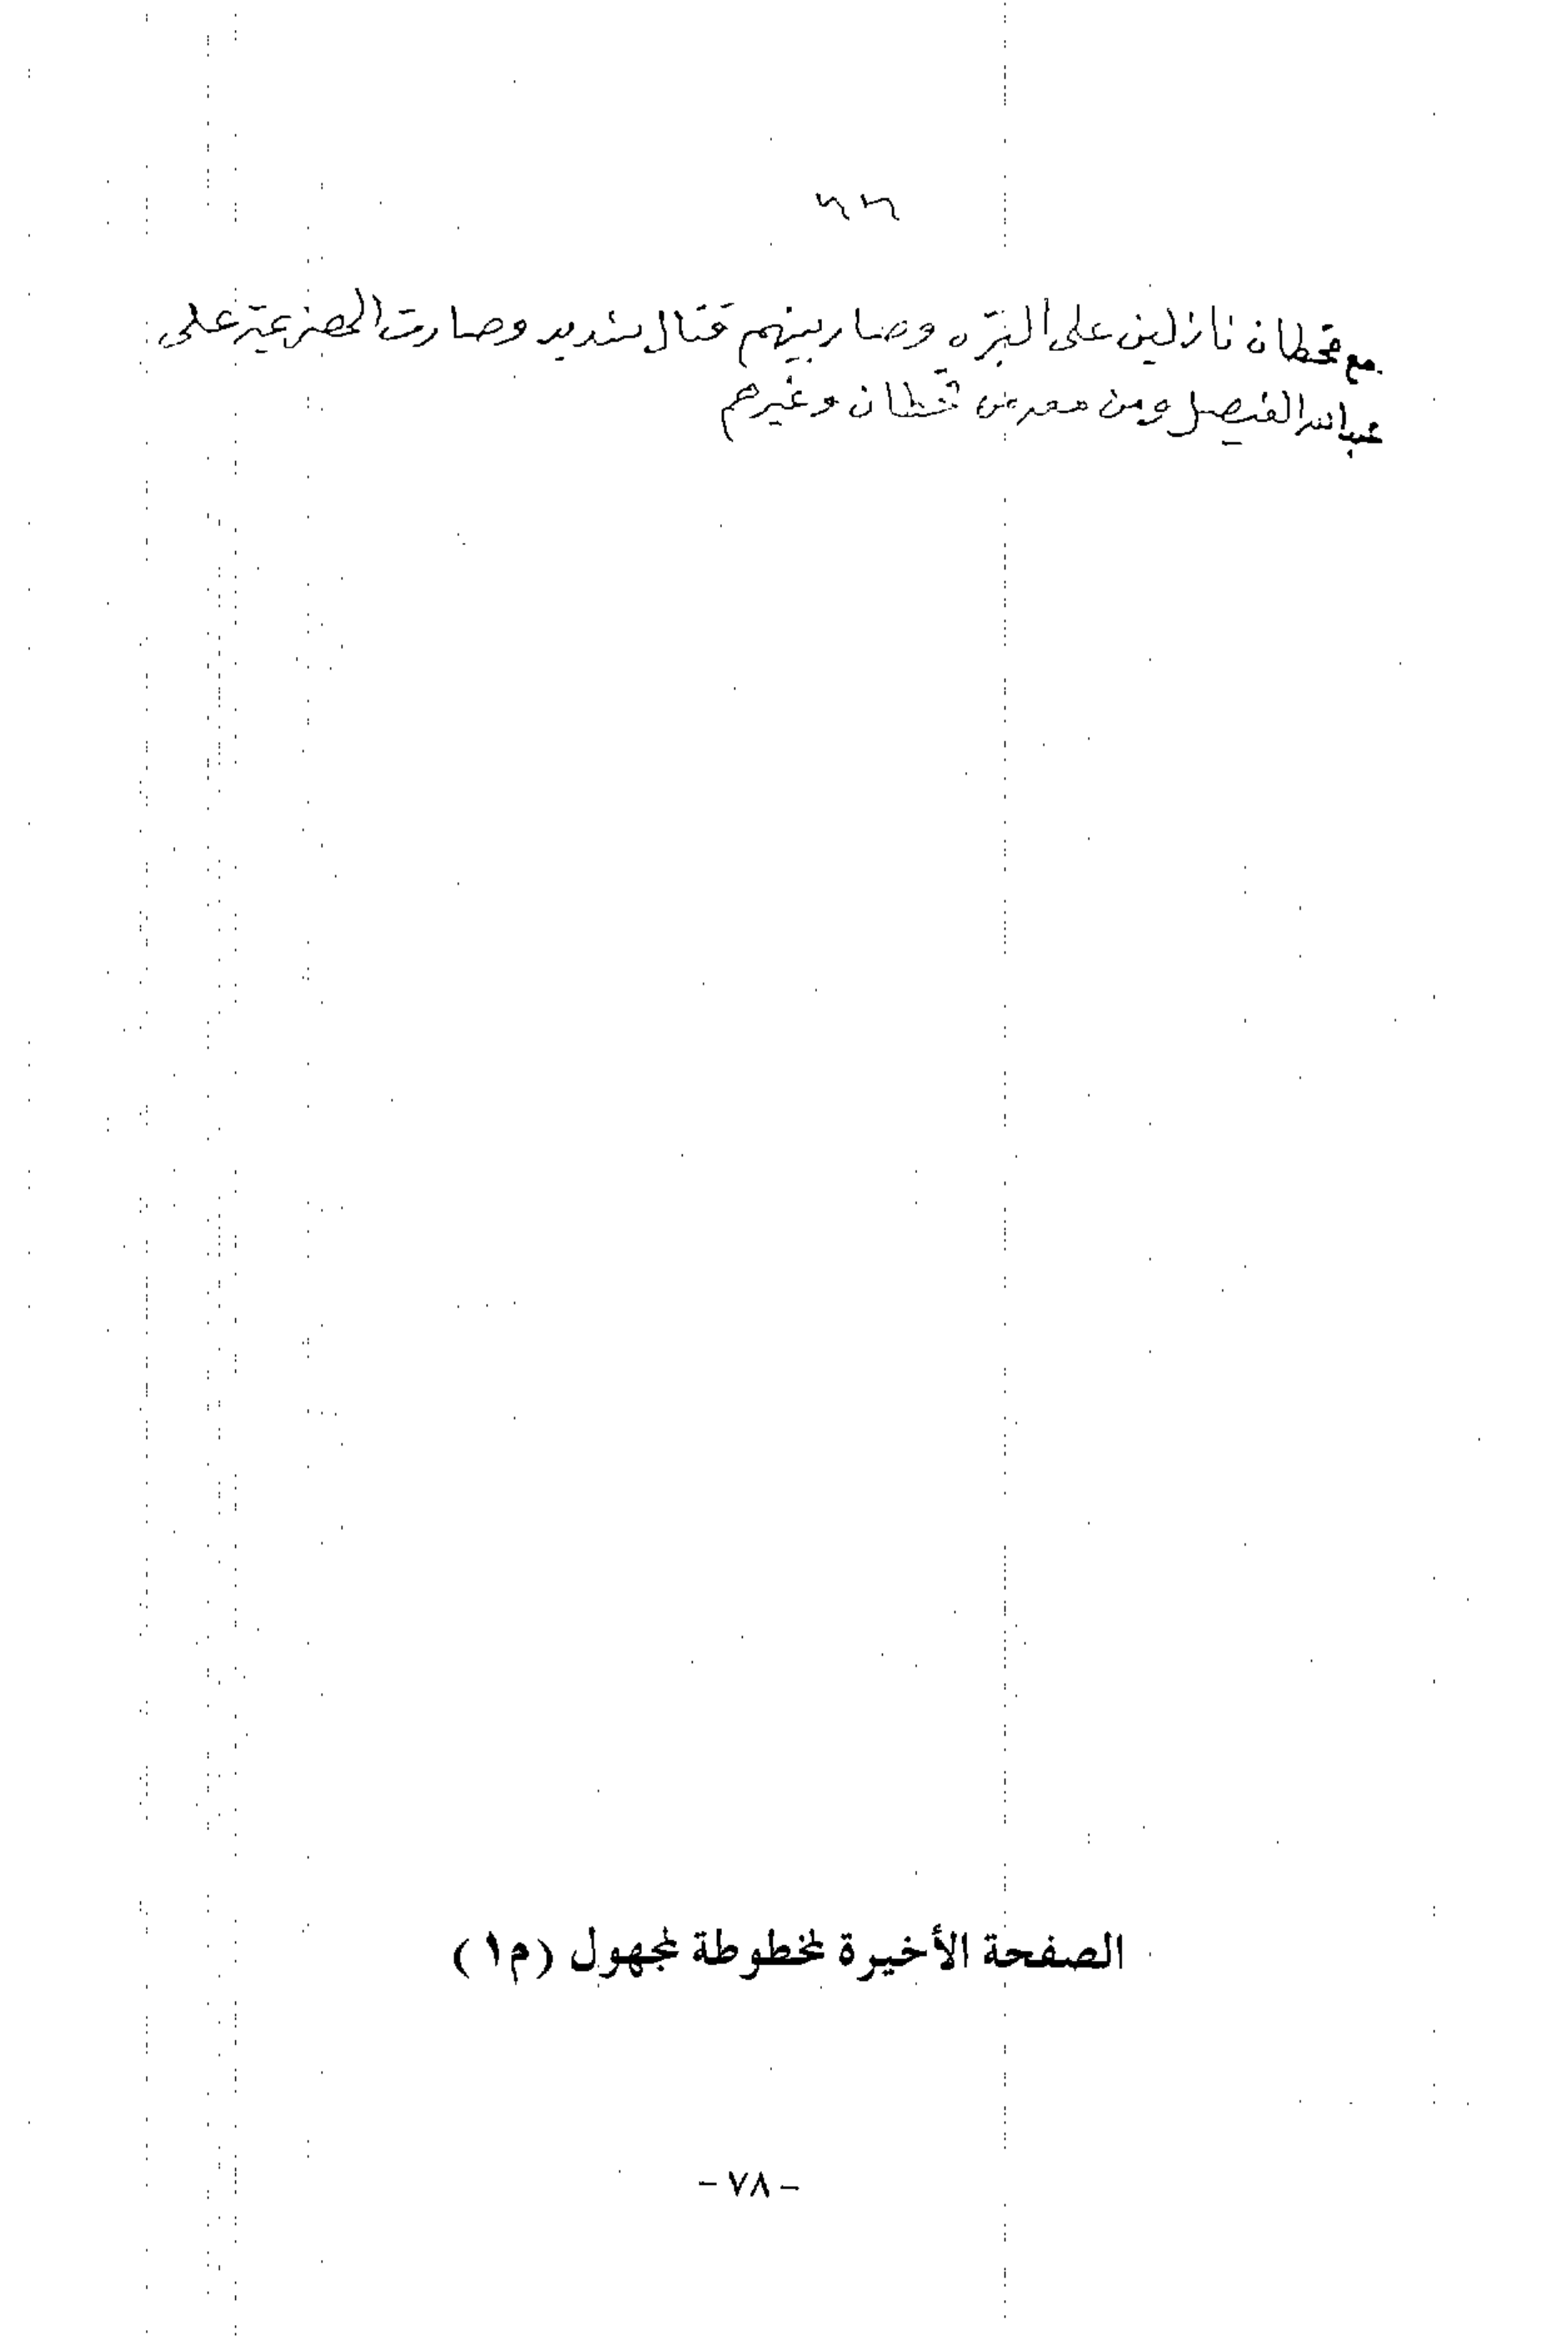 ٦٦
مع قحطان نازلين على البرّه وصار بينهم قتال شديد وصارت الهزيمة على
عبدالله الفيصل ومن معه من قحطان وغيرهم
الصفحة الأخيرة لمخطوطة لمجهول (م١)
- ٧٨ -